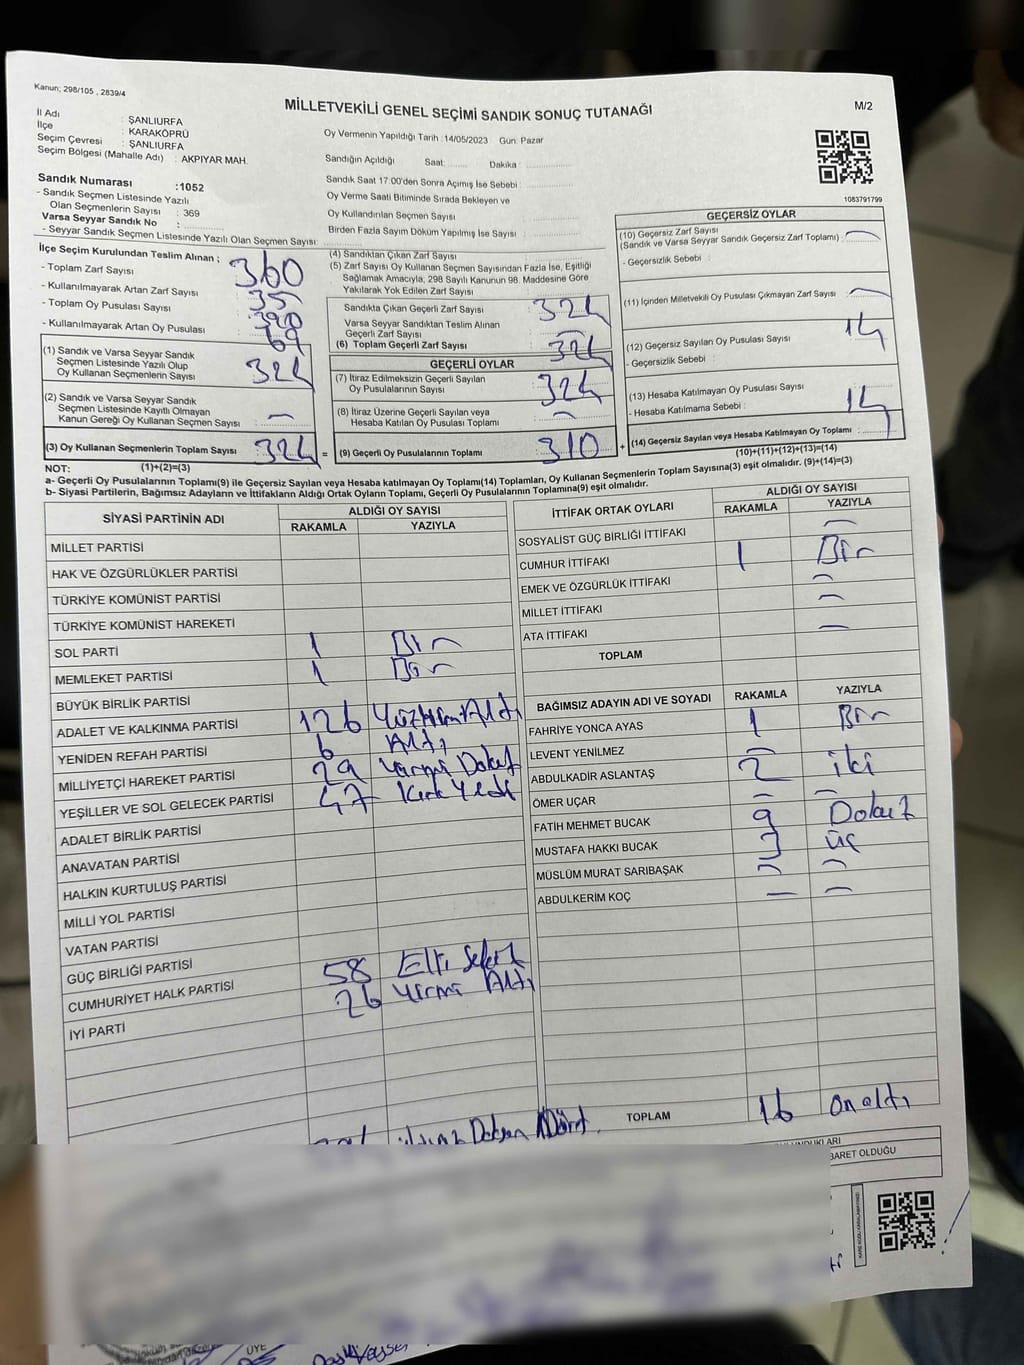 Kanun; 298/105 , 2839/4
MİLLETVEKİLİ GENEL SEÇİMİ SANDIK SONUÇ TUTANAĞI
M/2
İl Adı : ŞANLIURFA
İlçe : KARAKÖPRÜ
Seçim Çevresi : ŞANLIURFA
Seçim Bölgesi (Mahalle Adı) : AKPIYAR MAH.
Oy Vermenin Yapıldığı Tarih : 14/05/2023 Gün: Pazar
Sandığın Açıldığı Saat: Dakika :
Sandık Saat 17:00'den Sonra Açımış İse Sebebi :
Oy Verme Saati Bitiminde Sırada Bekleyen ve
Oy Kullandırılan Seçmen Sayısı
Birden Fazla Sayım Döküm Yapılmış İse Sayısı :
1083791799
Sandık Numarası :1052
- Sandık Seçmen Listesinde Yazılı
Olan Seçmenlerin Sayısı : 369
Varsa Seyyar Sandık No :
- Seyyar Sandık Seçmen Listesinde Yazılı Olan Seçmen Sayısı:
İlçe Seçim Kurulundan Teslim Alınan ;
- Toplam Zarf Sayısı : 360
- Kullanılmayarak Artan Zarf Sayısı : 35
- Toplam Oy Pusulası Sayısı : 390
- Kullanılmayarak Artan Oy Pusulası : 69
(1) Sandık ve Varsa Seyyar Sandık
Seçmen Listesinde Yazılı Olup
Oy Kullanan Seçmenlerin Sayısı : 324
(2) Sandık ve Varsa Seyyar Sandık
Seçmen Listesinde Kayıtlı Olmayan
Kanun Gereği Oy Kullanan Seçmen Sayısı : —
(3) Oy Kullanan Seçmenlerin Toplam Sayısı 324 =
(4) Sandıktan Çıkan Zarf Sayısı :
(5) Zarf Sayısı Oy Kullanan Seçmen Sayısından Fazla İse, Eşitliği
Sağlamak Amacıyla, 298 Sayılı Kanunun 98. Maddesine Göre
Yakılarak Yok Edilen Zarf Sayısı :
Sandıkta Çıkan Geçerli Zarf Sayısı : 324
Varsa Seyyar Sandıktan Teslim Alınan
Geçerli Zarf Sayısı : —
(6) Toplam Geçerli Zarf Sayısı : 324
GEÇERLİ OYLAR
(7) İtiraz Edilmeksizin Geçerli Sayılan
Oy Pusulalarının Sayısı : 324
(8) İtiraz Üzerine Geçerli Sayılan veya
Hesaba Katılan Oy Pusulası Toplamı : —
(9) Geçerli Oy Pusulalarının Toplamı : 310 +
GEÇERSİZ OYLAR
(10) Geçersiz Zarf Sayısı
(Sandık ve Varsa Seyyar Sandık Geçersiz Zarf Toplamı) : —
- Geçersizlik Sebebi :
(11) İçinden Milletvekili Oy Pusulası Çıkmayan Zarf Sayısı : —
(12) Geçersiz Sayılan Oy Pusulası Sayısı : 14
- Geçersizlik Sebebi :
(13) Hesaba Katılmayan Oy Pusulası Sayısı
- Hesaba Katılmama Sebebi : 14
(14) Geçersiz Sayılan veya Hesaba Katılmayan Oy Toplamı :
(10)+(11)+(12)+(13)=(14)
NOT: (1)+(2)=(3)
a- Geçerli Oy Pusulasının Toplamı(9) ile Geçersiz Sayılan veya Hesaba katılmayan Oy Toplamı(14) Toplamları, Oy Kullanan Seçmenlerin Toplam Sayısına(3) eşit olmalıdır. (9)+(14)=(3)
b- Siyasi Partilerin, Bağımsız Adayların ve İttifakların Aldığı Ortak Oyların Toplamı, Geçerli Oy Pusulalarının Toplamına(9) eşit olmalıdır.
SİYASİ PARTİNİN ADI ALDIĞI OY SAYISI
RAKAMLA YAZIYLA
MİLLET PARTİSİ
HAK VE ÖZGÜRLÜKLER PARTİSİ
TÜRKİYE KOMÜNİST PARTİSİ
TÜRKİYE KOMÜNİST HAREKETİ
SOL PARTİ 1 Bir
MEMLEKET PARTİSİ 1 Bir
BÜYÜK BİRLİK PARTİSİ
ADALET VE KALKINMA PARTİSİ 126 Yüzyirmi Altı
YENİDEN REFAH PARTİSİ 6 Altı
MİLLİYETÇİ HAREKET PARTİSİ 29 Yirmi Dokuz
YEŞİLLER VE SOL GELECEK PARTİSİ 47 Kırk Yedi
ADALET BİRLİK PARTİSİ
ANAVATAN PARTİSİ
HALKIN KURTULUŞ PARTİSİ
MİLLİ YOL PARTİSİ
VATAN PARTİSİ
GÜÇ BİRLİĞİ PARTİSİ
CUMHURİYET HALK PARTİSİ 58 Elli Sekiz
İYİ PARTİ 26 Yirmi Altı
Doksan Dört
İTTİFAK ORTAK OYLARI ALDIĞI OY SAYISI
RAKAMLA YAZIYLA
SOSYALİST GÜÇ BİRLİĞİ İTTİFAKI —
CUMHUR İTTİFAKI 1 Bir
EMEK VE ÖZGÜRLÜK İTTİFAKI —
MİLLET İTTİFAKI —
ATA İTTİFAKI —
TOPLAM
BAĞIMSIZ ADAYIN ADI VE SOYADI RAKAMLA YAZIYLA
FAHRİYE YONCA AYAS 1 Bir
LEVENT YENİLMEZ —
ABDULKADİR ASLANTAŞ 2 iki
ÖMER UÇAR — —
FATİH MEHMET BUCAK 9 Dokuz
MUSTAFA HAKKI BUCAK 3 üç
MÜSLÜM MURAT SARIBAŞAK — —
ABDULKERİM KOÇ — —
TOPLAM 16 on altı
BARET OLDUĞU
ÜYE